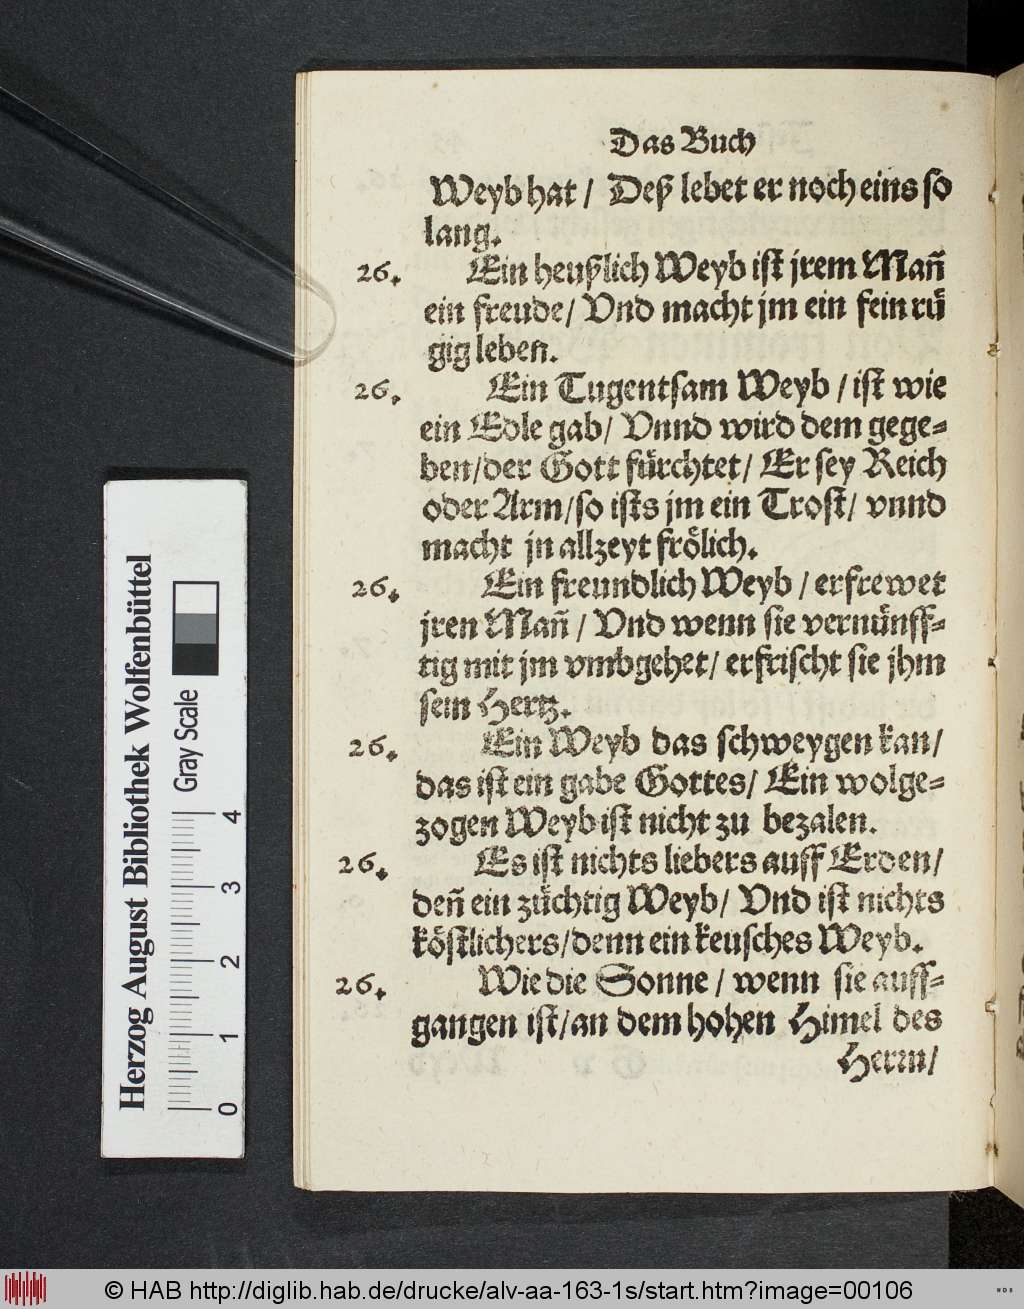 Das Buch
Weyb hat / Deß lebet er noch eins so
lang.
26. Ein heußlich Weyb ist jrem Man̄
ein freude / Vnd macht jm ein fein rü
gig leben.
26. Ein Tugentsam Weyb / ist wie
ein Edle gab / Vnnd wird dem gege⸗
ben / der Gott fürchtet / Er sey Reich
oder Arm / so ists jm ein Trost / vnnd
macht jn allzeyt frölich.
26. Ein freundlich Weyb / erfrewet
jren Man̄ / Vnd wenn sie vernünff⸗
tig mit jm vmbgehet / erfrischt sie jhm
sein Hertz.
26. Ein Weyb das schweygen kan /
das ist ein gabe Gottes / Ein wolge⸗
zogen Weyb ist nicht zu bezalen.
26. Es ist nichts liebers auff Erden /
den̄ ein züchtig Weyb / Vnd ist nichts
köstlichers / denn ein keusches Weyb.
26. Wie die Sonne / wenn sie auff⸗
gangen ist / an dem hohen Himel des
Herrn /
Herzog August Bibliothek Wolfenbüttel
Gray Scale
0 1 2 3 4
© HAB http://diglib.hab.de/drucke/alv-aa-163-1s/start.htm?image=00106